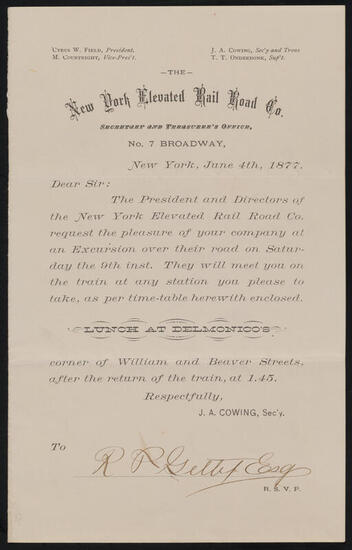 Cyrus W. Field, President.
M. Courtright, Vice-Pres't.
J. A. Cowing, Sec'y and Treas
T. T. Onderdonk, Sup't.
—THE—
New York Elevated Rail Road Co.
Secretary and Treasurer's Office,
No. 7 BROADWAY,
New York, June 4th, 1877.
Dear Sir:
The President and Directors of
the New York Elevated Rail Road Co.
request the pleasure of your company at
an Excursion over their road on Satur-
day the 9th inst. They will meet you on
the train at any station you please to
take, as per time-table herewith enclosed.
LUNCH AT DELMONICO'S
corner of William and Beaver Streets,
after the return of the train, at 1.45.
Respectfully,
J. A. COWING, Sec'y.
To
R P Getty Esq
R. S. V. P.